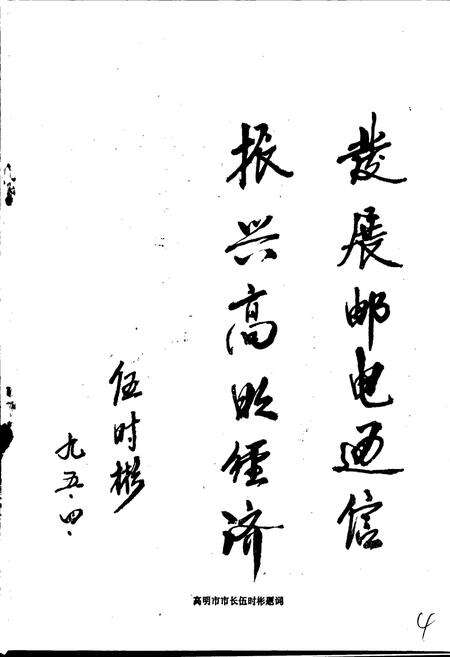 發展邮电通信
振兴高明经济
伍时彬
九五.四.
高明市市长伍时彬题词
4